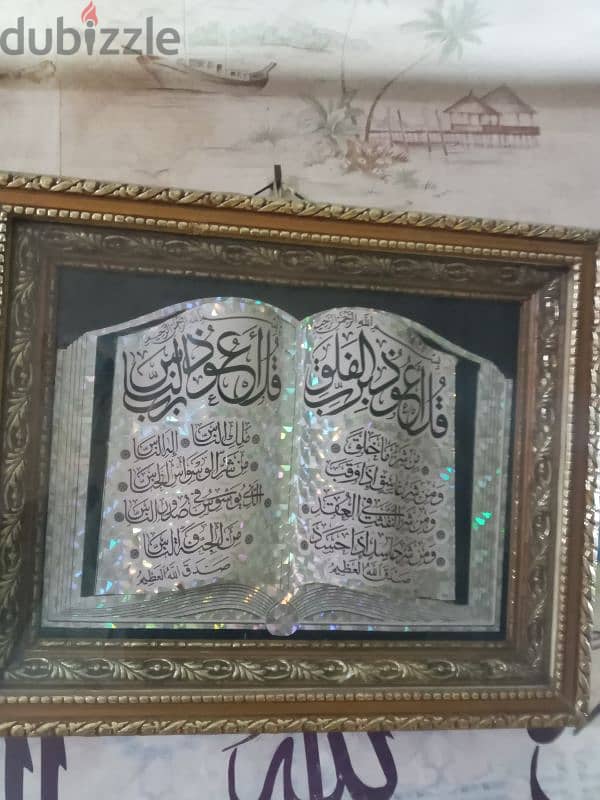 dubizzle
بسم الله الرحمن الرحيم
قُلْ أَعُوذُ بِرَبِّ الْفَلَقِ
مِنْ شَرِّ مَا خَلَقَ
وَمِنْ شَرِّ غَاسِقٍ إِذَا وَقَبَ
وَمِنْ شَرِّ النَّفَّاثَاتِ فِي الْعُقَدِ
وَمِنْ شَرِّ حَاسِدٍ إِذَا حَسَدَ
صَدَقَ اللهُ الْعَظِيمُ
بسم الله الرحمن الرحيم
قُلْ أَعُوذُ بِرَبِّ النَّاسِ
مَلِكِ النَّاسِ إِلَهِ النَّاسِ
مِنْ شَرِّ الْوَسْوَاسِ الْخَنَّاسِ
الَّذِي يُوَسْوِسُ فِي صُدُورِ النَّاسِ
مِنَ الْجِنَّةِ وَالنَّاسِ
صَدَقَ اللهُ الْعَظِيمُ
الله